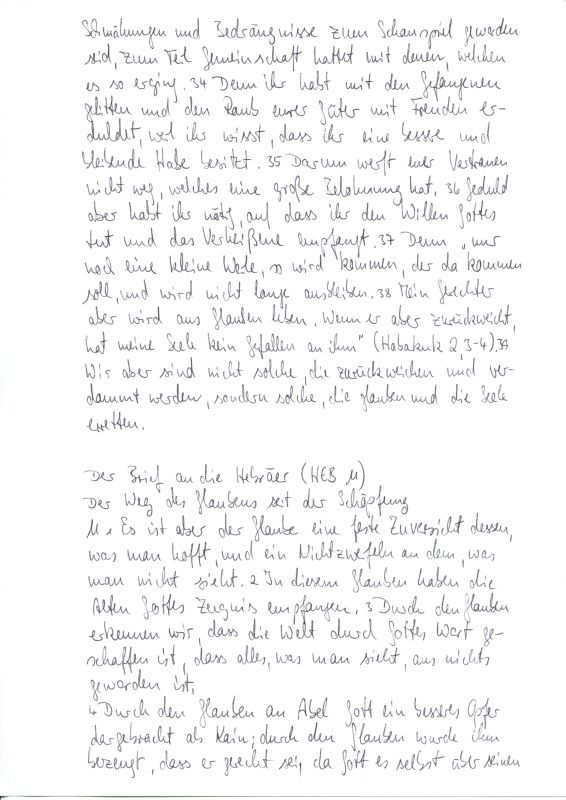 Schmähungen und Bedrängnisse zum Schauspiel geworden
seid, zum Teil Gemeinschaft hattet mit denen, welchen
es so erging. 34 Denn ihr habt mit den Gefangenen
gelitten und den Raub eurer Güter mit Freuden er-
duldet, weil ihr wisst, dass ihr eine bessere und
bleibende Habe besitzt. 35 Darum werft euer Vertrauen
nicht weg, welches eine große Belohnung hat. 36 Geduld
aber habt ihr nötig, auf dass ihr den Willen Gottes
tut und das Verheißene empfangt. 37 Denn „nur
noch eine kleine Weile, so wird kommen, der da kommen
soll, und wird nicht lange ausbleiben. 38 Mein Gerechter
aber wird aus Glauben leben. Wenn er aber zurückweicht,
hat meine Seele kein Gefallen an ihm" (Habakuk 2,3-4). 39
Wir aber sind nicht solche, die zurückweichen und ver-
dammt werden, sondern solche, die glauben und die Seele
erretten.
Der Brief an die Hebräer (HEB 11)
Der Weg des Glaubens seit der Schöpfung
11 1 Es ist aber der Glaube eine feste Zuversicht dessen,
was man hofft, und ein Nichtzweifeln an dem, was
man nicht sieht. 2 In diesem Glauben haben die
Alten Gottes Zeugnis empfangen. 3 Durch den Glauben
erkennen wir, dass die Welt durch Gottes Wort ge-
schaffen ist, dass alles, was man sieht, aus nichts
geworden ist.
4 Durch den Glauben an Abel Gott ein besseres Opfer
dargebracht als Kain; durch den Glauben wurde ihm
bezeugt, dass er gerecht sei, da Gott es selbst über seinen